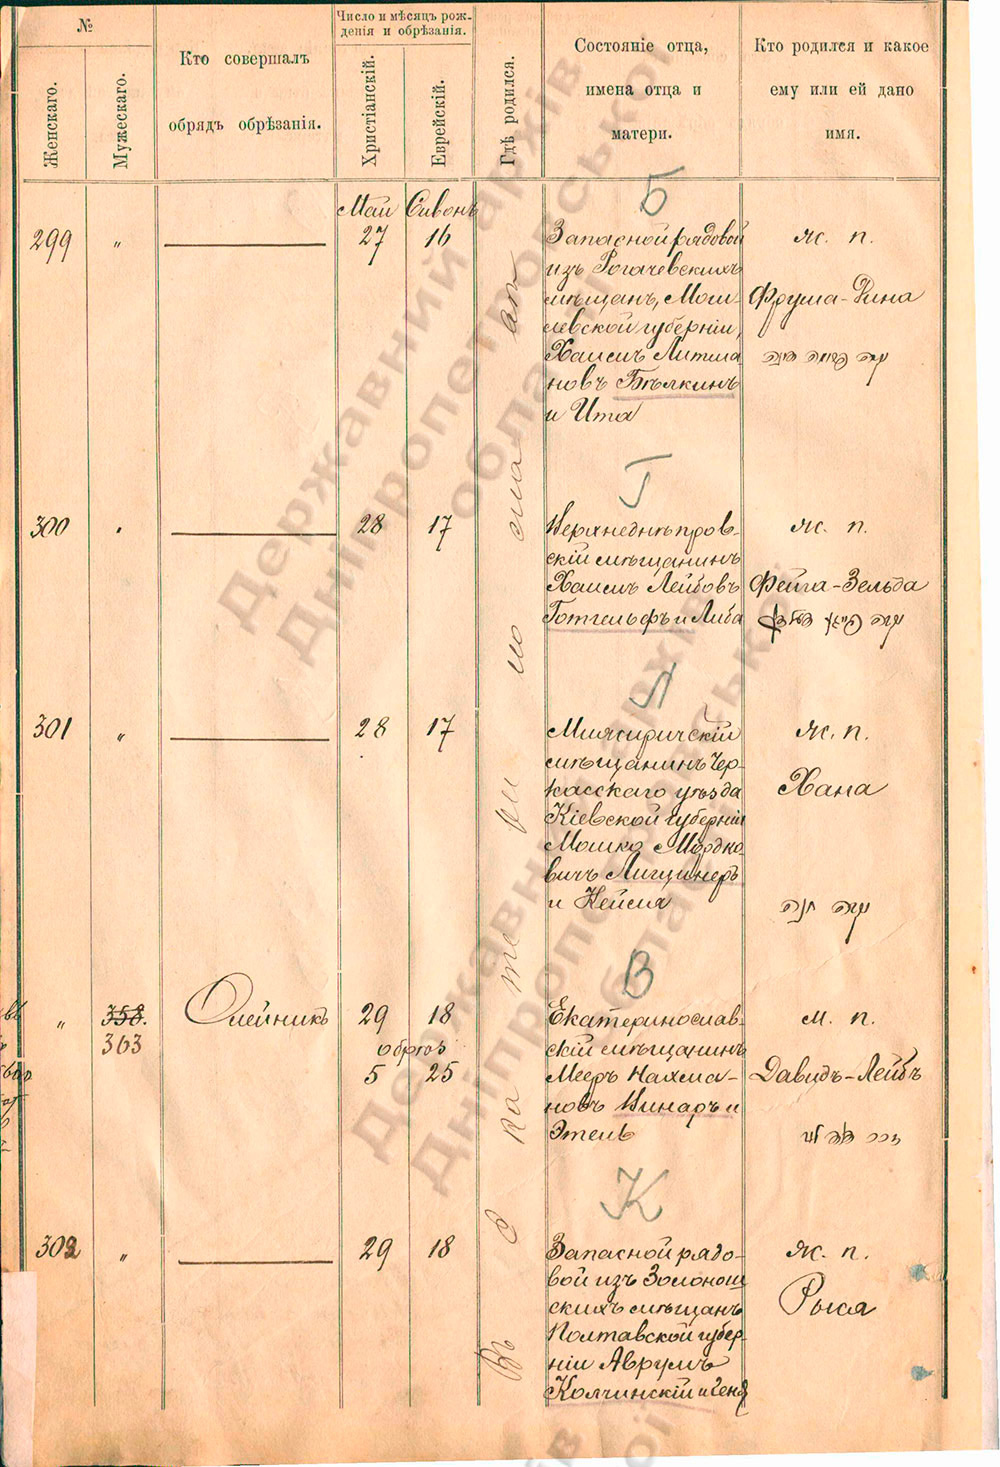 №
Женскаго.
Мужескаго.
Кто совершалъ
обрядъ обрѣзанія.
Число и мѣсяцъ рож-
денія и обрѣзанія.
Христіанскій.
Еврейскій.
Гдѣ родился.
Состояніе отца,
имена отца и
матери.
Кто родился и какое
ему или ей дано
имя.
Въ г. Екатеринославѣ
Май Сивонъ
Б
299 „ 27 16
Запасной рядовой
изъ Рогачевскихъ
мѣщанъ, Моги-
левской губерніи,
Хаимъ Литма
новъ Бѣлкинъ
и Ита
ж. п.
Фрума-Дина
Г
300 „ 28 17
Верхнеднѣпров-
скій мѣщанинъ
Хаимъ Лейбовъ
Готгельфъ и Либа
ж. п.
Фейга-Зельда
Л
301 „ 28 17
мѣщанинъ Чер-
касскаго уѣзда
Кіевской губерніи
Мошко Мордко-
вичъ
и Кейсия
ж. п.
Хана
חנה
В
„ 358. Олейникъ 29 18
363 обрѣз
5 25
Екатеринослав-
скій мѣщанинъ
Мееръ Нахма-
новъ Винаръ и
Этель
м. п.
Давидъ-Лейбъ
К
302 „ 29 18
Запасной рядо-
вой изъ Золонош
скихъ мѣщанъ
Полтавской губер-
ніи Аврумъ
Колчинскій и Геня
ж. п.
Рыся
Державний архів
Дніпропетровської
області
Державний архів
Дніпропетровської
області